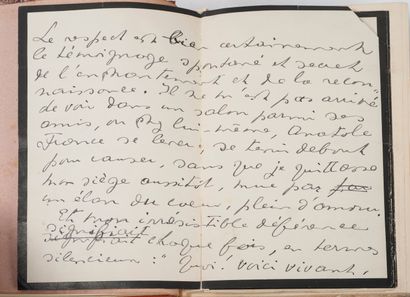 Le respect est bien certainement
le témoignage spontané et secret
de l'enchantement et de la recon-
naissance. Il ne m'est pas arrivé
de voir dans un salon parmi ses
amis, ou chez lui-même, Anatole
France se lever, se tenir debout
pour causer, sans que je quittasse
mon siège aussitôt, mue par
un élan du coeur, plein d'amour.
Et mon irrésistible déférence
signifiait
signifiait chaque fois, en termes
silencieux : "Quoi! voici vivant,